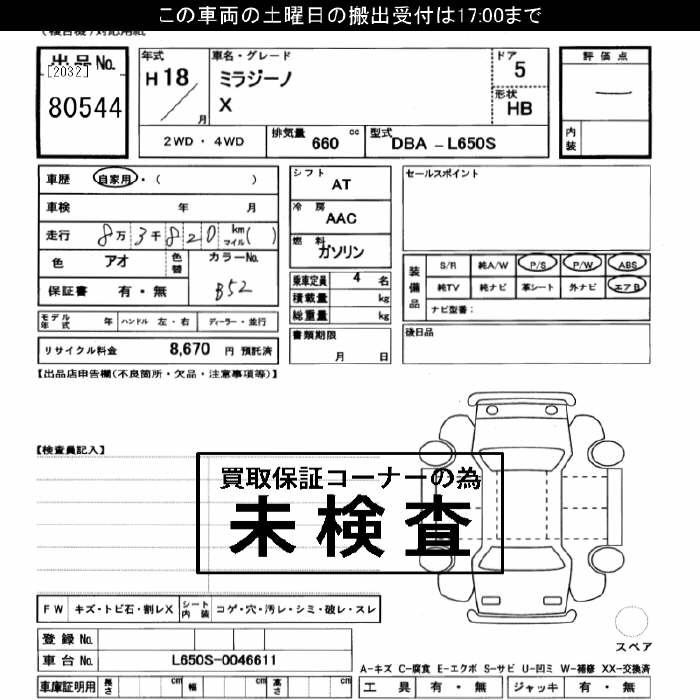 この車両の土曜日の搬出受付は17:00まで
(複合機)対応用紙
出品No.
[2032]
80544
年式
H18/月
車名・グレード
ミラジーノ
X
ドア
5
形状
HB
評価点
—
内装
2WD・4WD
排気量 660 cc
型式 DBA-L650S
車歴 自家用・( )
車検 年 月
走行 8万3千820 km マイル( )
色 アオ 色替 カラーNo. B52
保証書 有・無
シフト
AT
冷房
AAC
燃料
ガソリン
乗車定員 4 名
積載量 kg
総重量 kg
書類期限
月 日
セールスポイント
装備品
S/R 純A/W P/S P/W ABS
純TV 純ナビ 革シート 外ナビ エアB
ナビ型番:
後日品
モデル年式 年 ハンドル 左・右 ディーラー・並行
リサイクル料金 8,670 円 預託済
【出品店申告欄(不良箇所・欠品・注意事項等)】
【検査員記入】
買取保証コーナーの為
未検査
FW キズ・トビ石・割レX シート内装 コゲ・穴・汚レ・シミ・破レ・スレ
登録No.
車台No. L650S-0046611
車庫証明用 長さ cm 幅 cm 高さ cm
スペア
A-キズ C-腐食 E-エクボ S-サビ U-凹ミ W-補修 XX-交換済
工具 有・無 ジャッキ 有・無